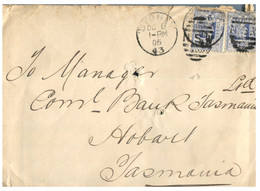 1-PM
95
43
To Manager
Ltd
Coml Bank Tasmania
Hobart
Tasmania